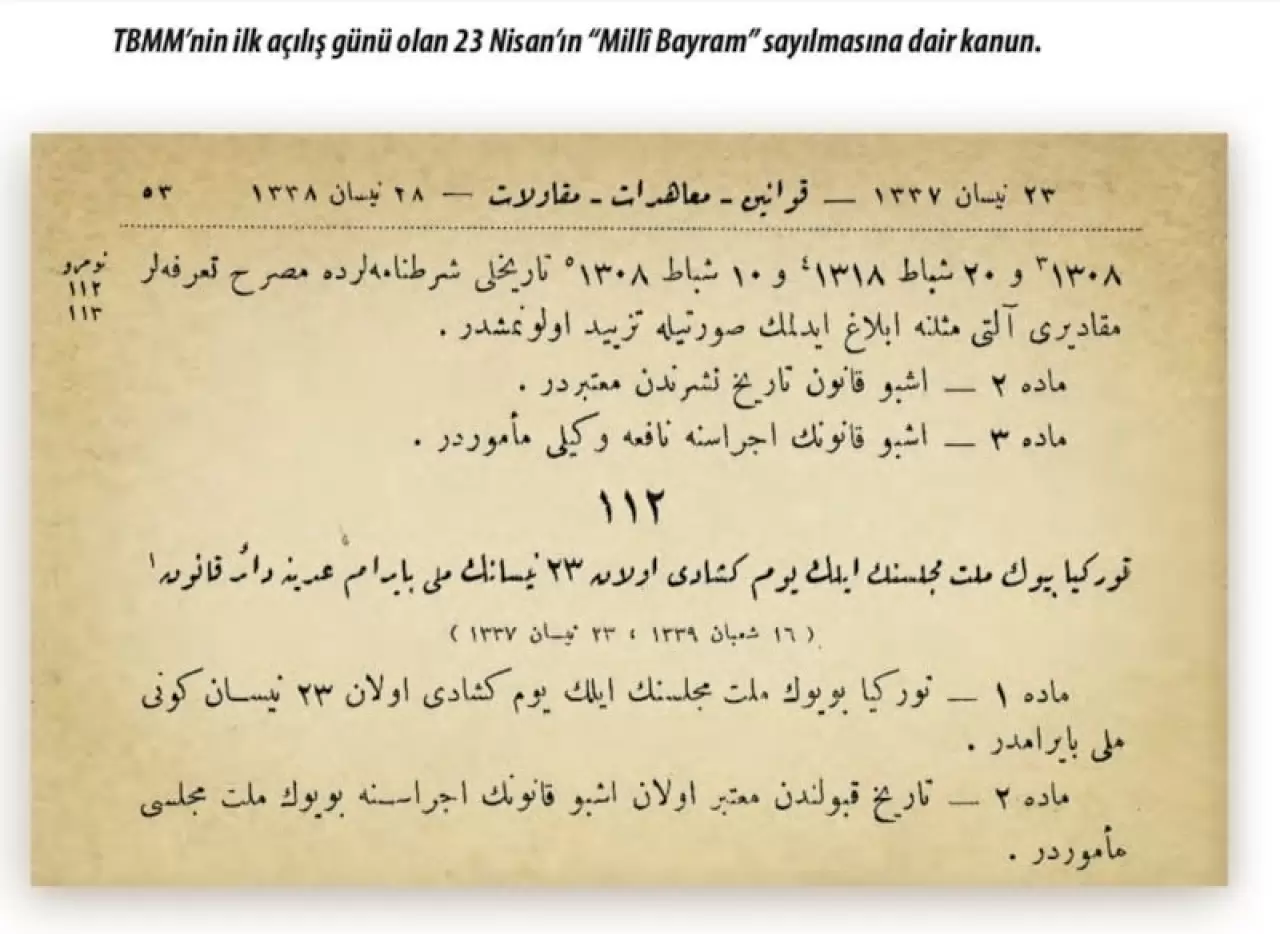 TBMM’nin ilk açılış günü olan 23 Nisan’ın “Millî Bayram” sayılmasına dair kanun.
٢٣ نيسان ١٣٣٧ — قوانين - معاهدات - مقاولات — ٢٨ نيسان ١٣٣٨ ٥٣
نومرو
١١٢
١١٣
١٣٠٨٣ و ٢٠ شباط ١٣١٨٤ و ١٠ شباط ١٣٠٨٥ تاريخلى شرطنامه‌لرده مصرح تعرفه‌لر
مقاديرى آلتى مثلنه ابلاغ ايدلمك صورتيله تزييد اولونمشدر .
ماده ٢ — اشبو قانون تاريخ نشرندن معتبردر .
ماده ٣ — اشبو قانونك اجراسنه نافعه وكيلى مأموردر .
١١٢
توركيا بيوك ملت مجلسنك ايلك يوم كشادى اولان ٢٣ نيسانك ملى بايرام عدينه دائر قانون ١
( ١٦ شعبان ١٣٣٩ ، ٢٣ نيسان ١٣٣٧ )
ماده ١ — توركيا بويوك ملت مجلسنك ايلك يوم كشادى اولان ٢٣ نيسان كونى
ملى بايرامدر .
ماده ٢ — تاريخ قبولندن معتبر اولان اشبو قانونك اجراسنه بويوك ملت مجلسى
مأموردر .